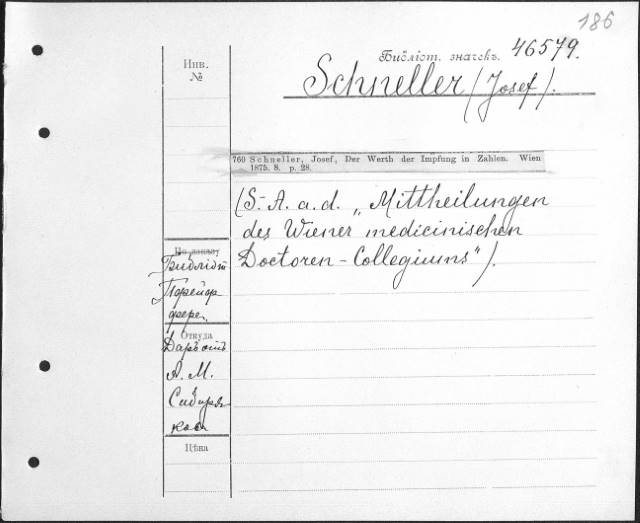 186
Библіот. значекъ. 46579.
Инв.
№
Schneller (Josef).
760 Schneller, Josef, Der Werth der Impfung in Zahlen. Wien
1875. 8. p. 28.
(S.-A. a. d. „Mittheilungen
des Wiener medicinischen
Doctoren-Collegiums").
По заказу
Библіот
Пфейф
фера
Откуда
Даръ отъ
А. М.
Сибиря
кова
Цѣна